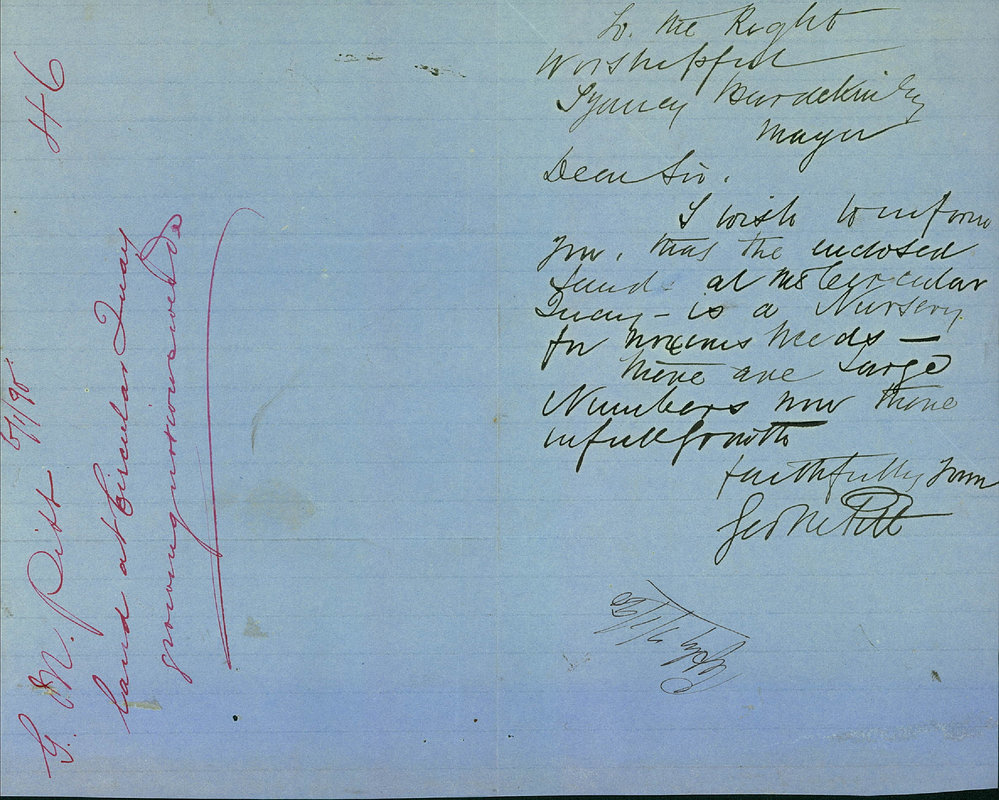 To. the Right
Worshipful
Sydney Burdekin Esq
Mayor
Dear Sir.
I wish to inform
you, that the enclosed
Land at the Circular
Quay - is a Nursery
for noxious weeds -
there are Large
Numbers now there
in full Growth
faithfully yours
Geo M Pitt
46
G. M. Pitt 6/1/90
land at Circular Quay
growing noxious weeds